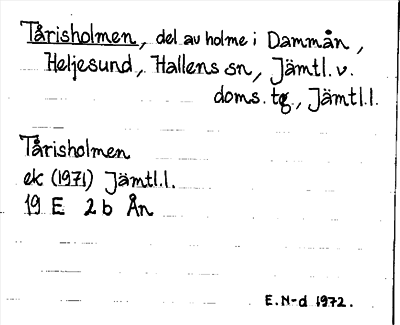 Tårisholmen, del av holme i Dammån,
Heljesund, Hallens sn, Jämtl. v.
doms. tg., Jämtl.l.
Tårisholmen
ek (1971) Jämtl.l.
19 E 2 b Ån
E.N-d 1972.